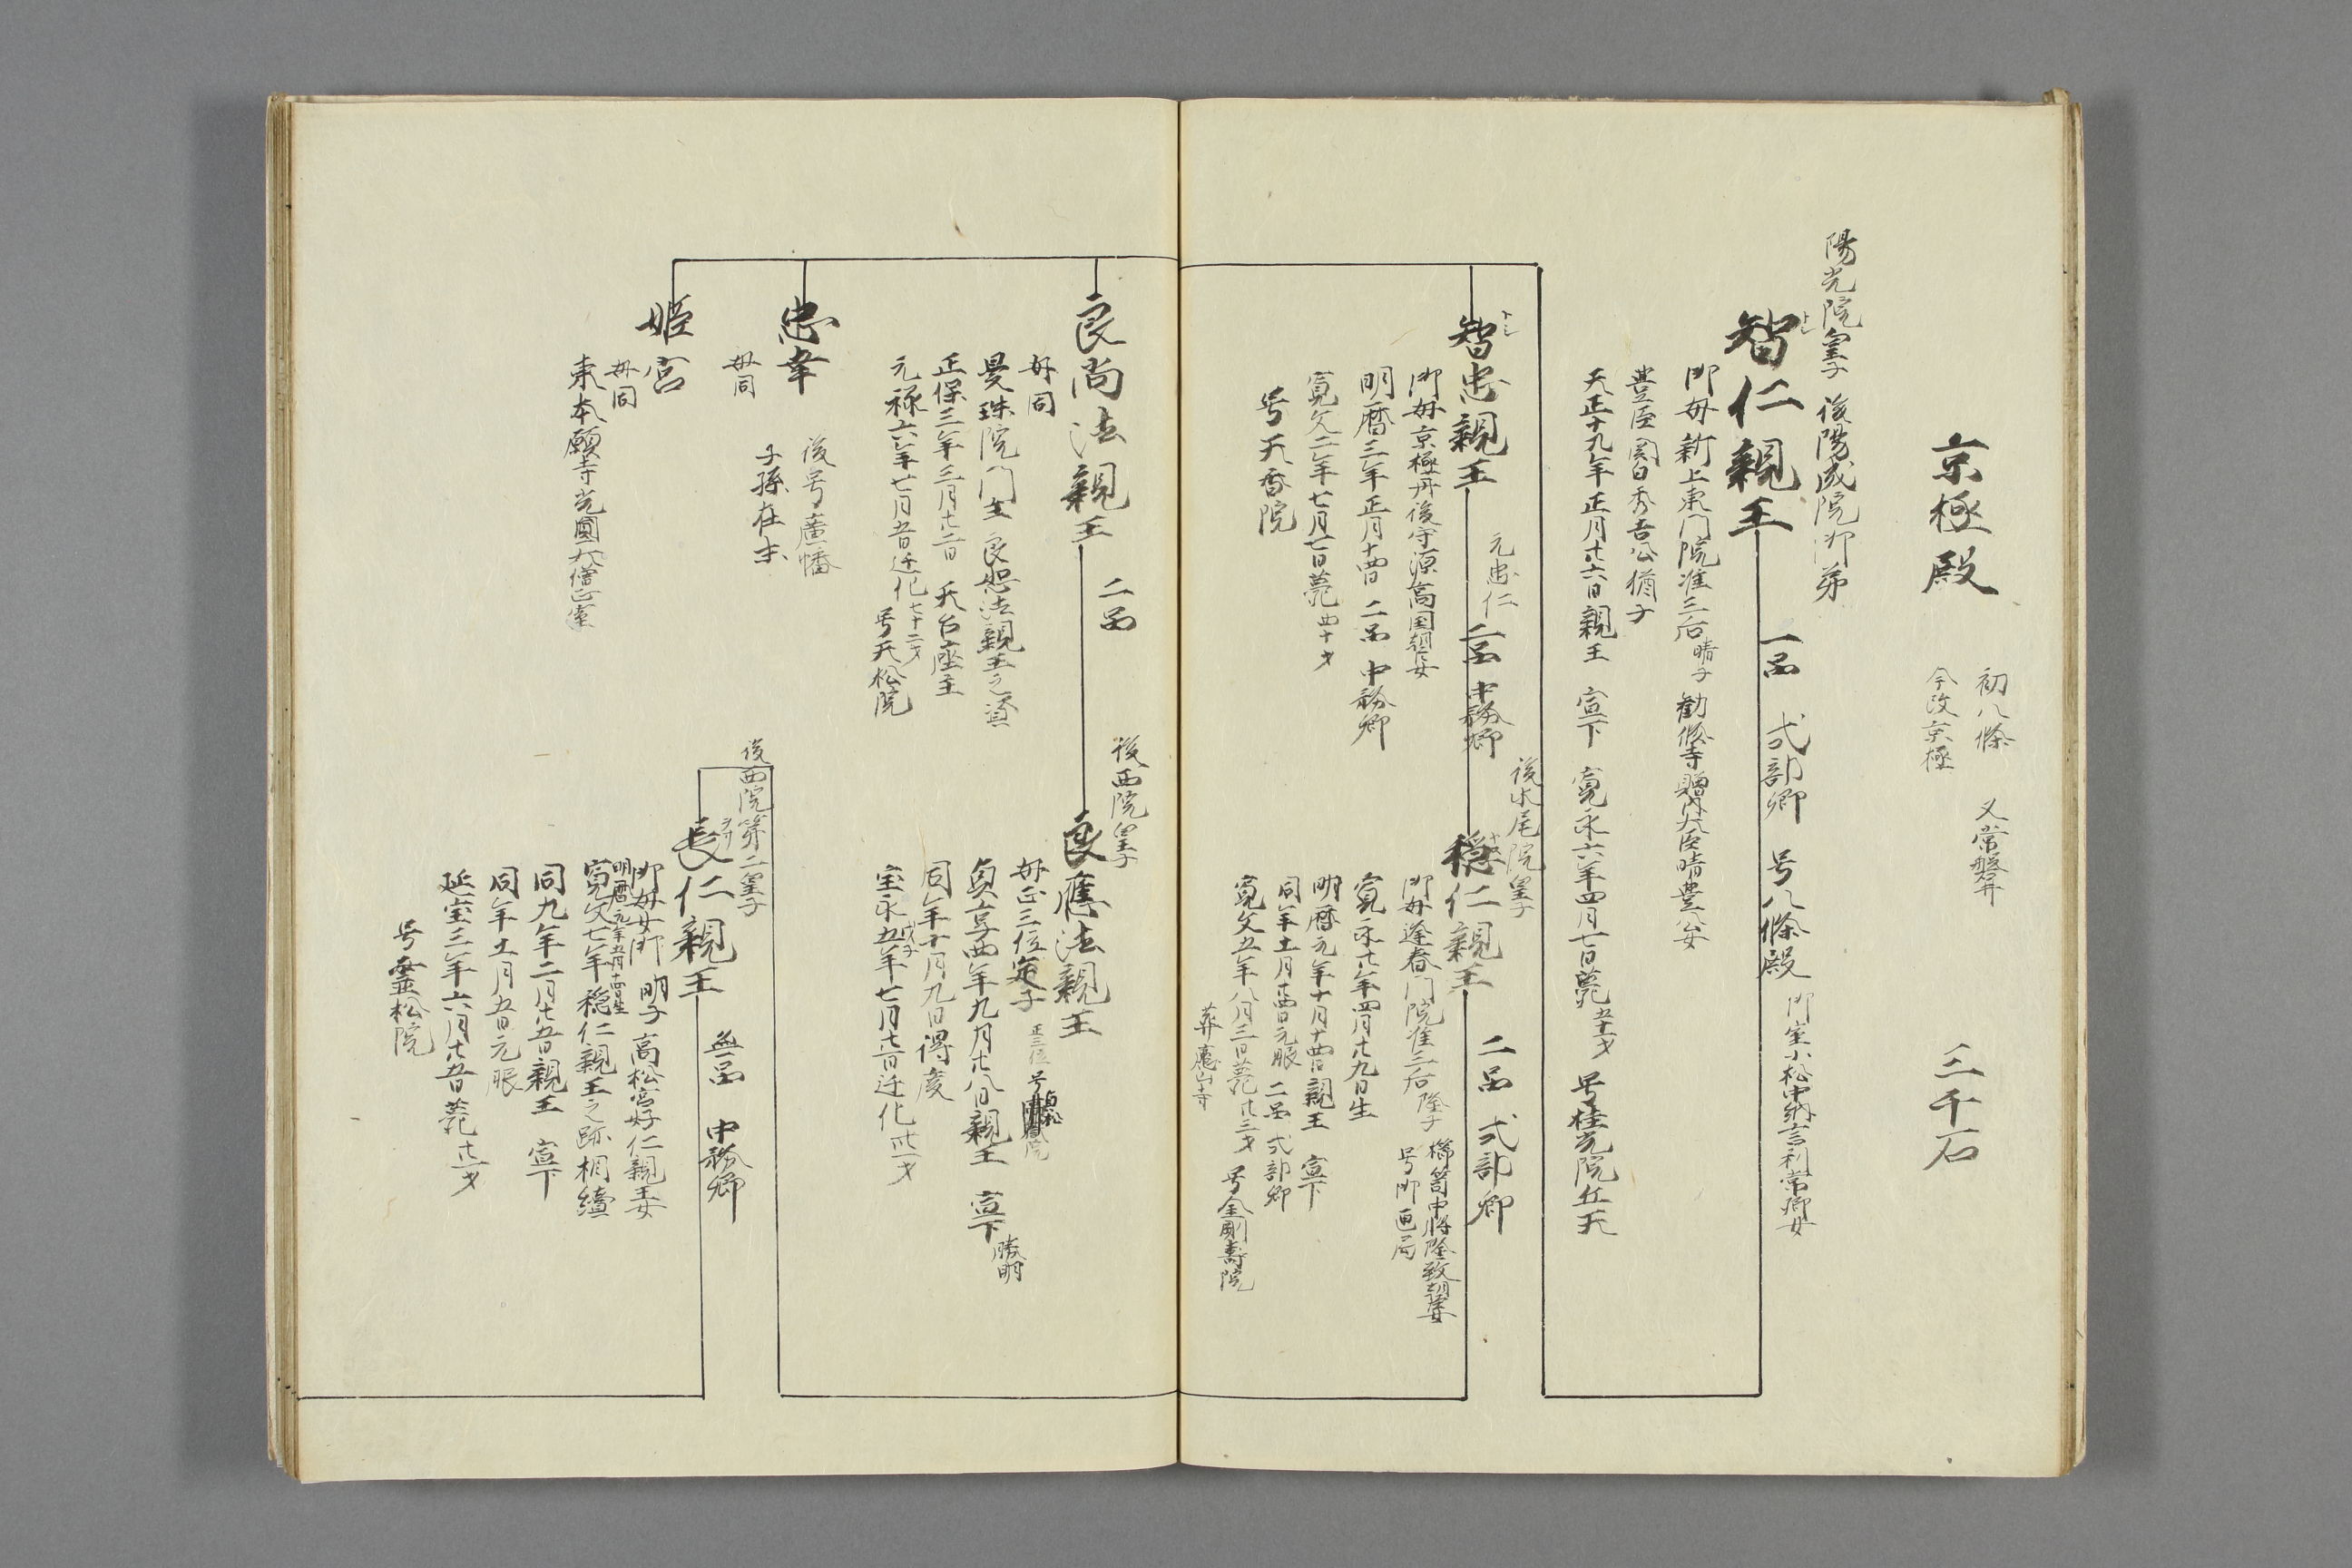 京極殿
初八條
今改京極
又常磐井
三千石
陽光院皇子 後陽成院御弟
智仁親王
トシ
一品 式部卿 号八條殿
御室小松中納言利常卿女
御母新上東門院准三后晴子 勧修寺贈内大臣晴豊公女
豊臣関白秀吉公猶子
天正十九年正月廿六日親王 宣下 寛永六年四月七日薨五十一才 号桂光院丘天
智忠親王
トシ
元忠仁
二品 中務卿
御母京極丹後守源高国朝臣女
明暦三年正月十四日 二品 中務卿
寛文二年七月七日薨四十才
号天香院
後水尾院皇子
穏仁親王
二品 式部卿
御母逢春門院准三后隆子 櫛笥中将隆致朝臣女
号御匣局
寛永廿年四月廿九日生
明暦元年十月十四日親王 宣下
同年十一月廿四日元服 二品 式部卿
寛文五年八月三日薨廿三才 号金剛寿院
葬慮山寺
良尚法親王 二品
母同
曼珠院門主 良恕法親王之資
正保三年三月廿二日 天台座主
元禄六年七月五日遷化七十二才
号天松院
忠幸
母同
後号廣幡
子孫在末
姫宮
母同
東本願寺光圓大僧正室
後西院皇子
良應法親王
母正三位定子 正三位 号
白松院
貞享四年九月廿八日親王 宣下勝明
同年十月九日得度
宝永五年七月廿二日遷化卅一才
戊子
後西院第二皇子
長仁親王
無品 中務卿
御母女御 明子 高松宮好仁親王女
明暦元年五月十四日生
寛文七年穏仁親王之跡相續
同九年二月廿五日親王 宣下
同年十一月五日元服
延宝三年六月廿五日薨廿一才
号霊松院